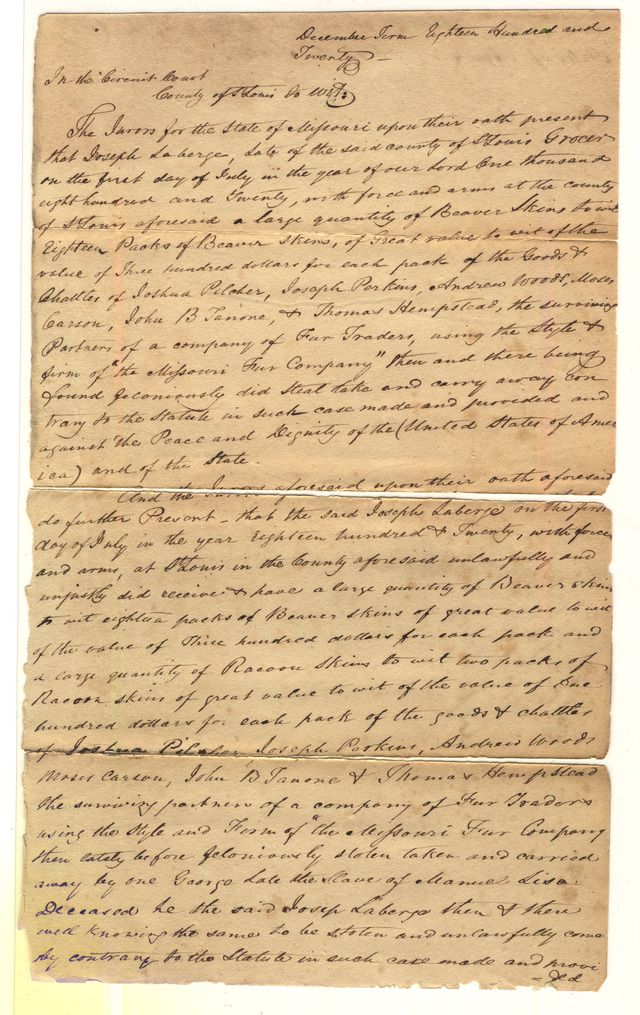 December Term Eighteen Hundred and
Twenty —
In the Circuit Court
County of St Louis to wit:
The Jurors for the State of Missouri upon their oath present
that Joseph Laberge, late of the said county of St Louis Grocer
on the first day of July in the year of our Lord One thousand
eight hundred and Twenty, with force and arms at the county
of St Louis aforesaid a large quantity of Beaver Skins to wit
Eighteen Packs of Beaver skins, of Great value to wit of the
value of Three hundred dollars for each pack of the Goods &
Chattles of Joshua Pilcher, Joseph Perkins, Andrew Woods, Moses
Carson, John B Zanone, & Thomas Hempstead, the surviving
Partners of a company of Fur Traders, using the Style &
firm of "the Missouri Fur Company" then and there being
found feloniously did steal take and carry away con
trary to the statute in such case made and provided and
against the Peace and Dignity of the (United States of Amer
ica) and of the State.
And the Jurors aforesaid upon their oath aforesaid
do further Present — that the said Joseph Laberge on the first
day of July in the year Eighteen hundred & Twenty, with force
and arms, at St Louis in the County aforesaid unlawfully and
unjustly did receive & have a large quantity of Beaver skins
to wit eighteen packs of Beaver skins of great value to wit
of the value of Three hundred dollars for each pack and
a large quantity of Racoon skins to wit two packs of
Racoon skins of great value to wit of the value of One
hundred dollars for each pack of the goods & chattles
of Joshua Pilcher, Joseph Perkins, Andrew Woods
Moses Carson, John B Zanone & Thomas Hempstead
the surviving partners of a company of Fur Traders
using the Style and Firm of "the Missouri Fur Company
then lately before feloniously stolen taken and carried
away by one George late the Slave of Manuel Lisa
Deceased he the said Josep Laberge then & there
well knowing the same to be stolen and unlawfully come
by contrary to the Statute in such case made and provi
—ded